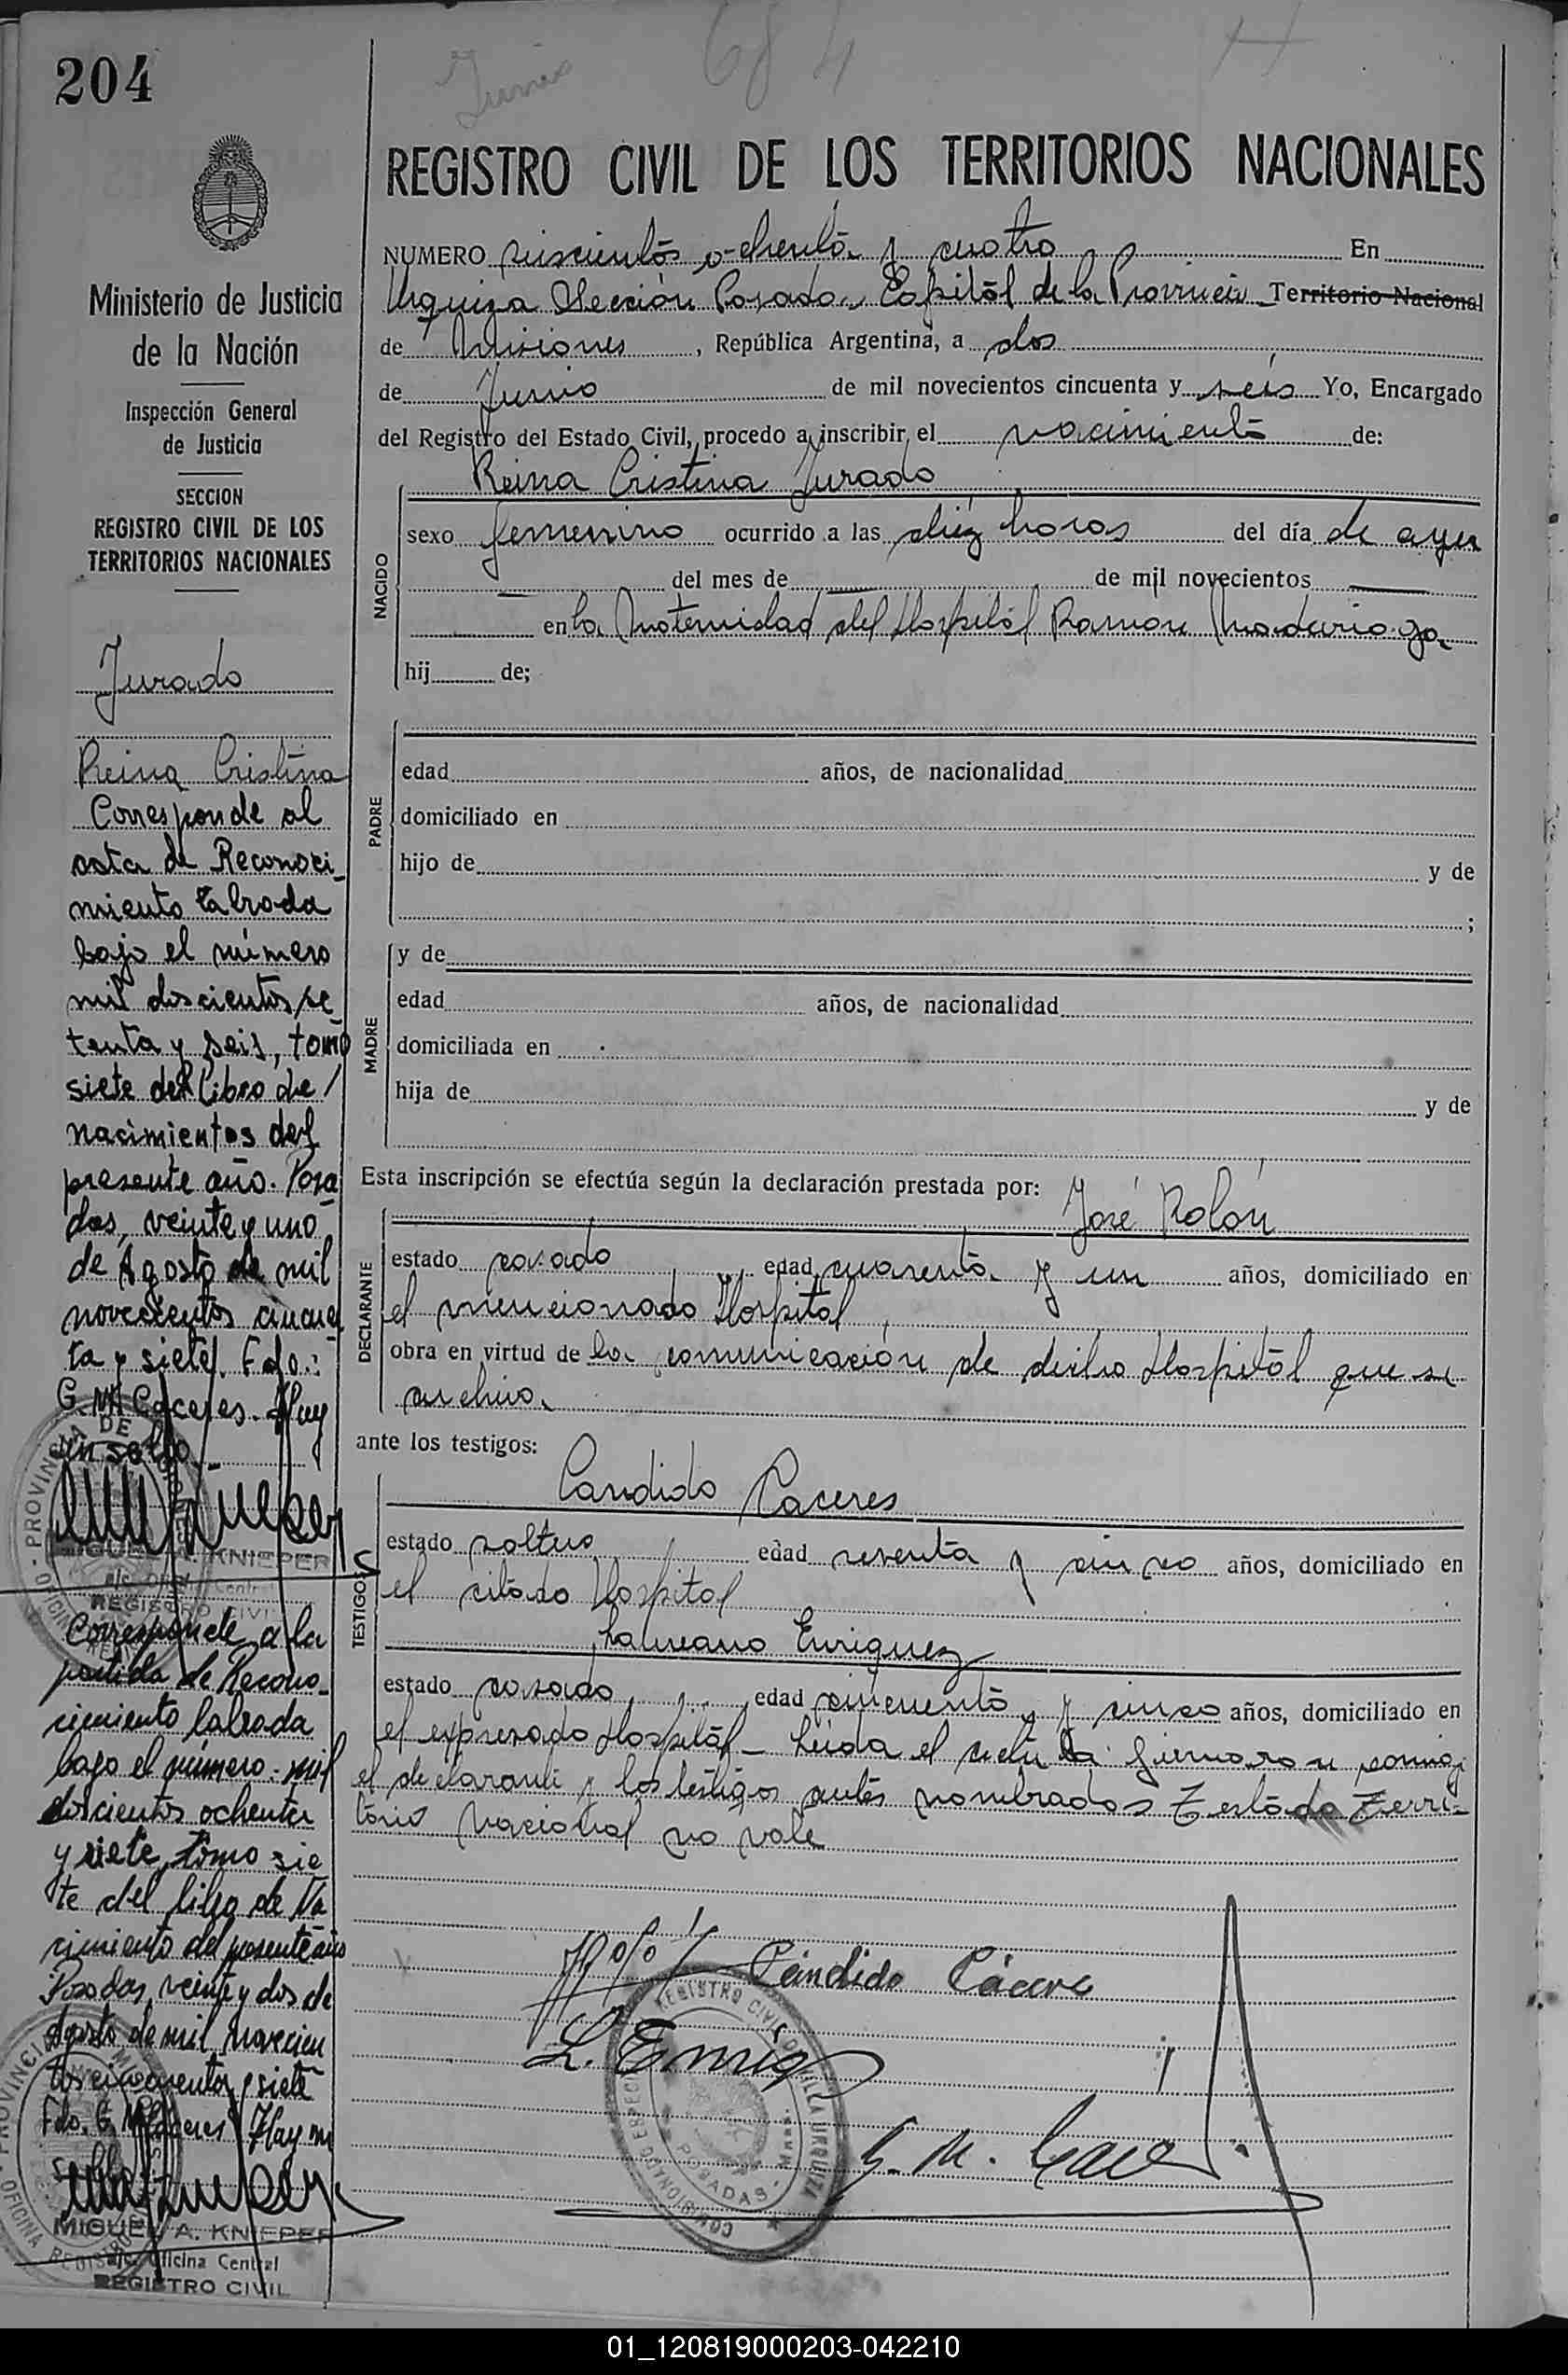 204
Junio
684
REGISTRO CIVIL DE LOS TERRITORIOS NACIONALES
Ministerio de Justicia
de la Nación
Inspección General
de Justicia
SECCION
REGISTRO CIVIL DE LOS
TERRITORIOS NACIONALES
Jurado
Reina Cristina
Corresponde al
acta de Reconoci_
miento labrada
bajo el número
mil doscientos se
tenta y seis, tomo
siete del libro de
nacimientos del
presente año. Posa
das, veinte y uno
de Agosto de mil
novecientos cincuen
ta y siete. Fdo.:
G. M. Caceres. Hay
un sello.
MIGUEL A. KNIEPER
REGISTRO CIVIL
Corresponde a la
partida de Recono_
cimiento labrada
bajo el número: mil
doscientos ochenta
y siete, tomo sie
te del libro de Na
cimiento del presente año
Posadas, veinte y dos de
Agosto de mil novecien
tos cincuenta y siete
Fdo. G. M. Caceres Hay un
sello
MIGUEL A. KNIEPER
Oficina Central
REGISTRO CIVIL
NUMERO seiscientos ochenta y cuatro En
Urquiza Sección Posadas, Capital de la Provincia Territorio Nacional
de Misiones, República Argentina, a dos
de Junio de mil novecientos cincuenta y seis Yo, Encargado
del Registro del Estado Civil, procedo a inscribir el nacimiento de:
Reina Cristina Jurado
NACIDO
sexo femenino ocurrido a las diez horas del día de ayer
del mes de de mil novecientos
en la Maternidad del Hospital Ramon Madariaga
hij de;
PADRE
edad años, de nacionalidad
domiciliado en
hijo de y de
;
MADRE
y de
edad años, de nacionalidad
domiciliada en
hija de y de
Esta inscripción se efectúa según la declaración prestada por: José Rolón
DECLARANTE
estado casado edad cuarenta y un años, domiciliado en
el mencionado Hospital,
obra en virtud de la comunicación de dicho Hospital que se
archiva.
ante los testigos:
Candido Caceres
TESTIGOS
estado soltero edad sesenta y cinco años, domiciliado en
el citado Hospital
Laureano Enriquez
estado casado, edad cincuenta y cinco años, domiciliado en
el expresado Hospital - Leida el acta la firmaron conmigo
el declarante y los testigos antes nombrados Testado Terri-
torio Nacional no vale
Cándido Cácere
L. Enriq
REGISTRO CIVIL DE VILLA URQUIZA
POSADAS - MNES.
G. M. Cace
01_120819000203-042210